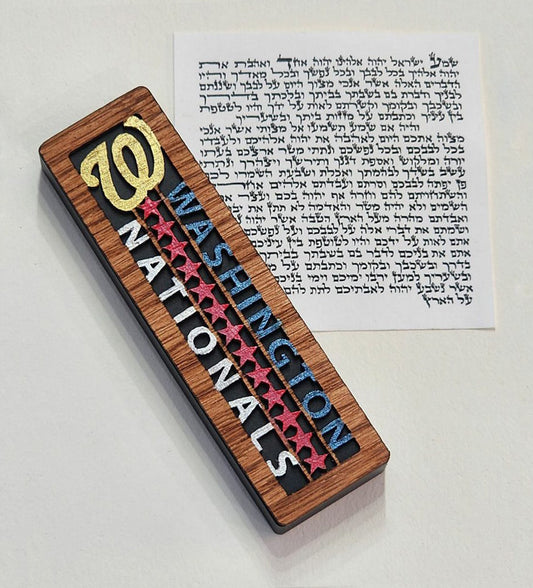 WASHINGTON
NATIONALS
W
שמע ישראל יהוה אלהינו יהוה אחד ואהבת את
יהוה אלהיך בכל לבבך ובכל נפשך ובכל מאדך והיו
הדברים האלה אשר אנכי מצוך היום על לבבך ושננתם
לבניך ודברת בם בשבתך בביתך ובלכתך בדרך
ובשכבך ובקומך וקשרתם לאות על ידך והיו לטטפת
בין עיניך וכתבתם על מזזות ביתך ובשעריך
והיה אם שמע תשמעו אל מצותי אשר אנכי
מצוה אתכם היום לאהבה את יהוה אלהיכם ולעבדו
בכל לבבכם ובכל נפשכם ונתתי מטר ארצכם בעתו
יורה ומלקוש ואספת דגנך ותירשך ויצהרך ונתתי
עשב בשדך לבהמתך ואכלת ושבעת השמרו לכם
פן יפתה לבבכם וסרתם ועבדתם אלהים
והשתחויתם להם וחרה אף יהוה בכם ועצר
השמים ולא יהיה מטר והאדמה לא תתן את
ואבדתם מהרה מעל הארץ הטבה אשר יהוה
ושמתם את דברי אלה על לבבכם ועל נפשכם
אתם לאות על ידכם והיו לטוטפת בין עיניכם
אתם את בניכם לדבר בם בשבתך בביתך
בדרך ובשכבך ובקומך וכתבתם על
ובשעריך למען ירבו ימיכם וימי בניכם
אשר נשבע יהוה לאבתיכם לתת להם
על הארץ